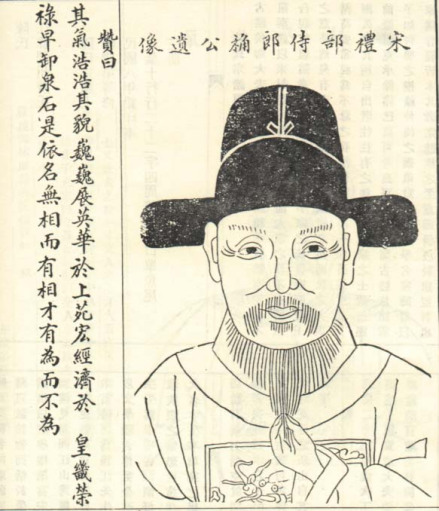 宋禮部侍郎桷公遺像
贊曰
其氣浩浩其貌巍巍展英華於上苑宏經濟於 皇畿榮
祿早卸泉石是依名無相而有相才有為而不為